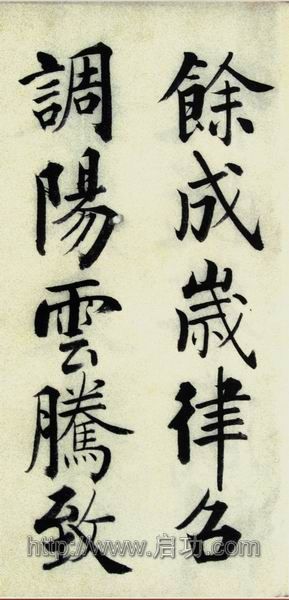 餘成歲律召
調陽雲騰致
http://www.启功.com/